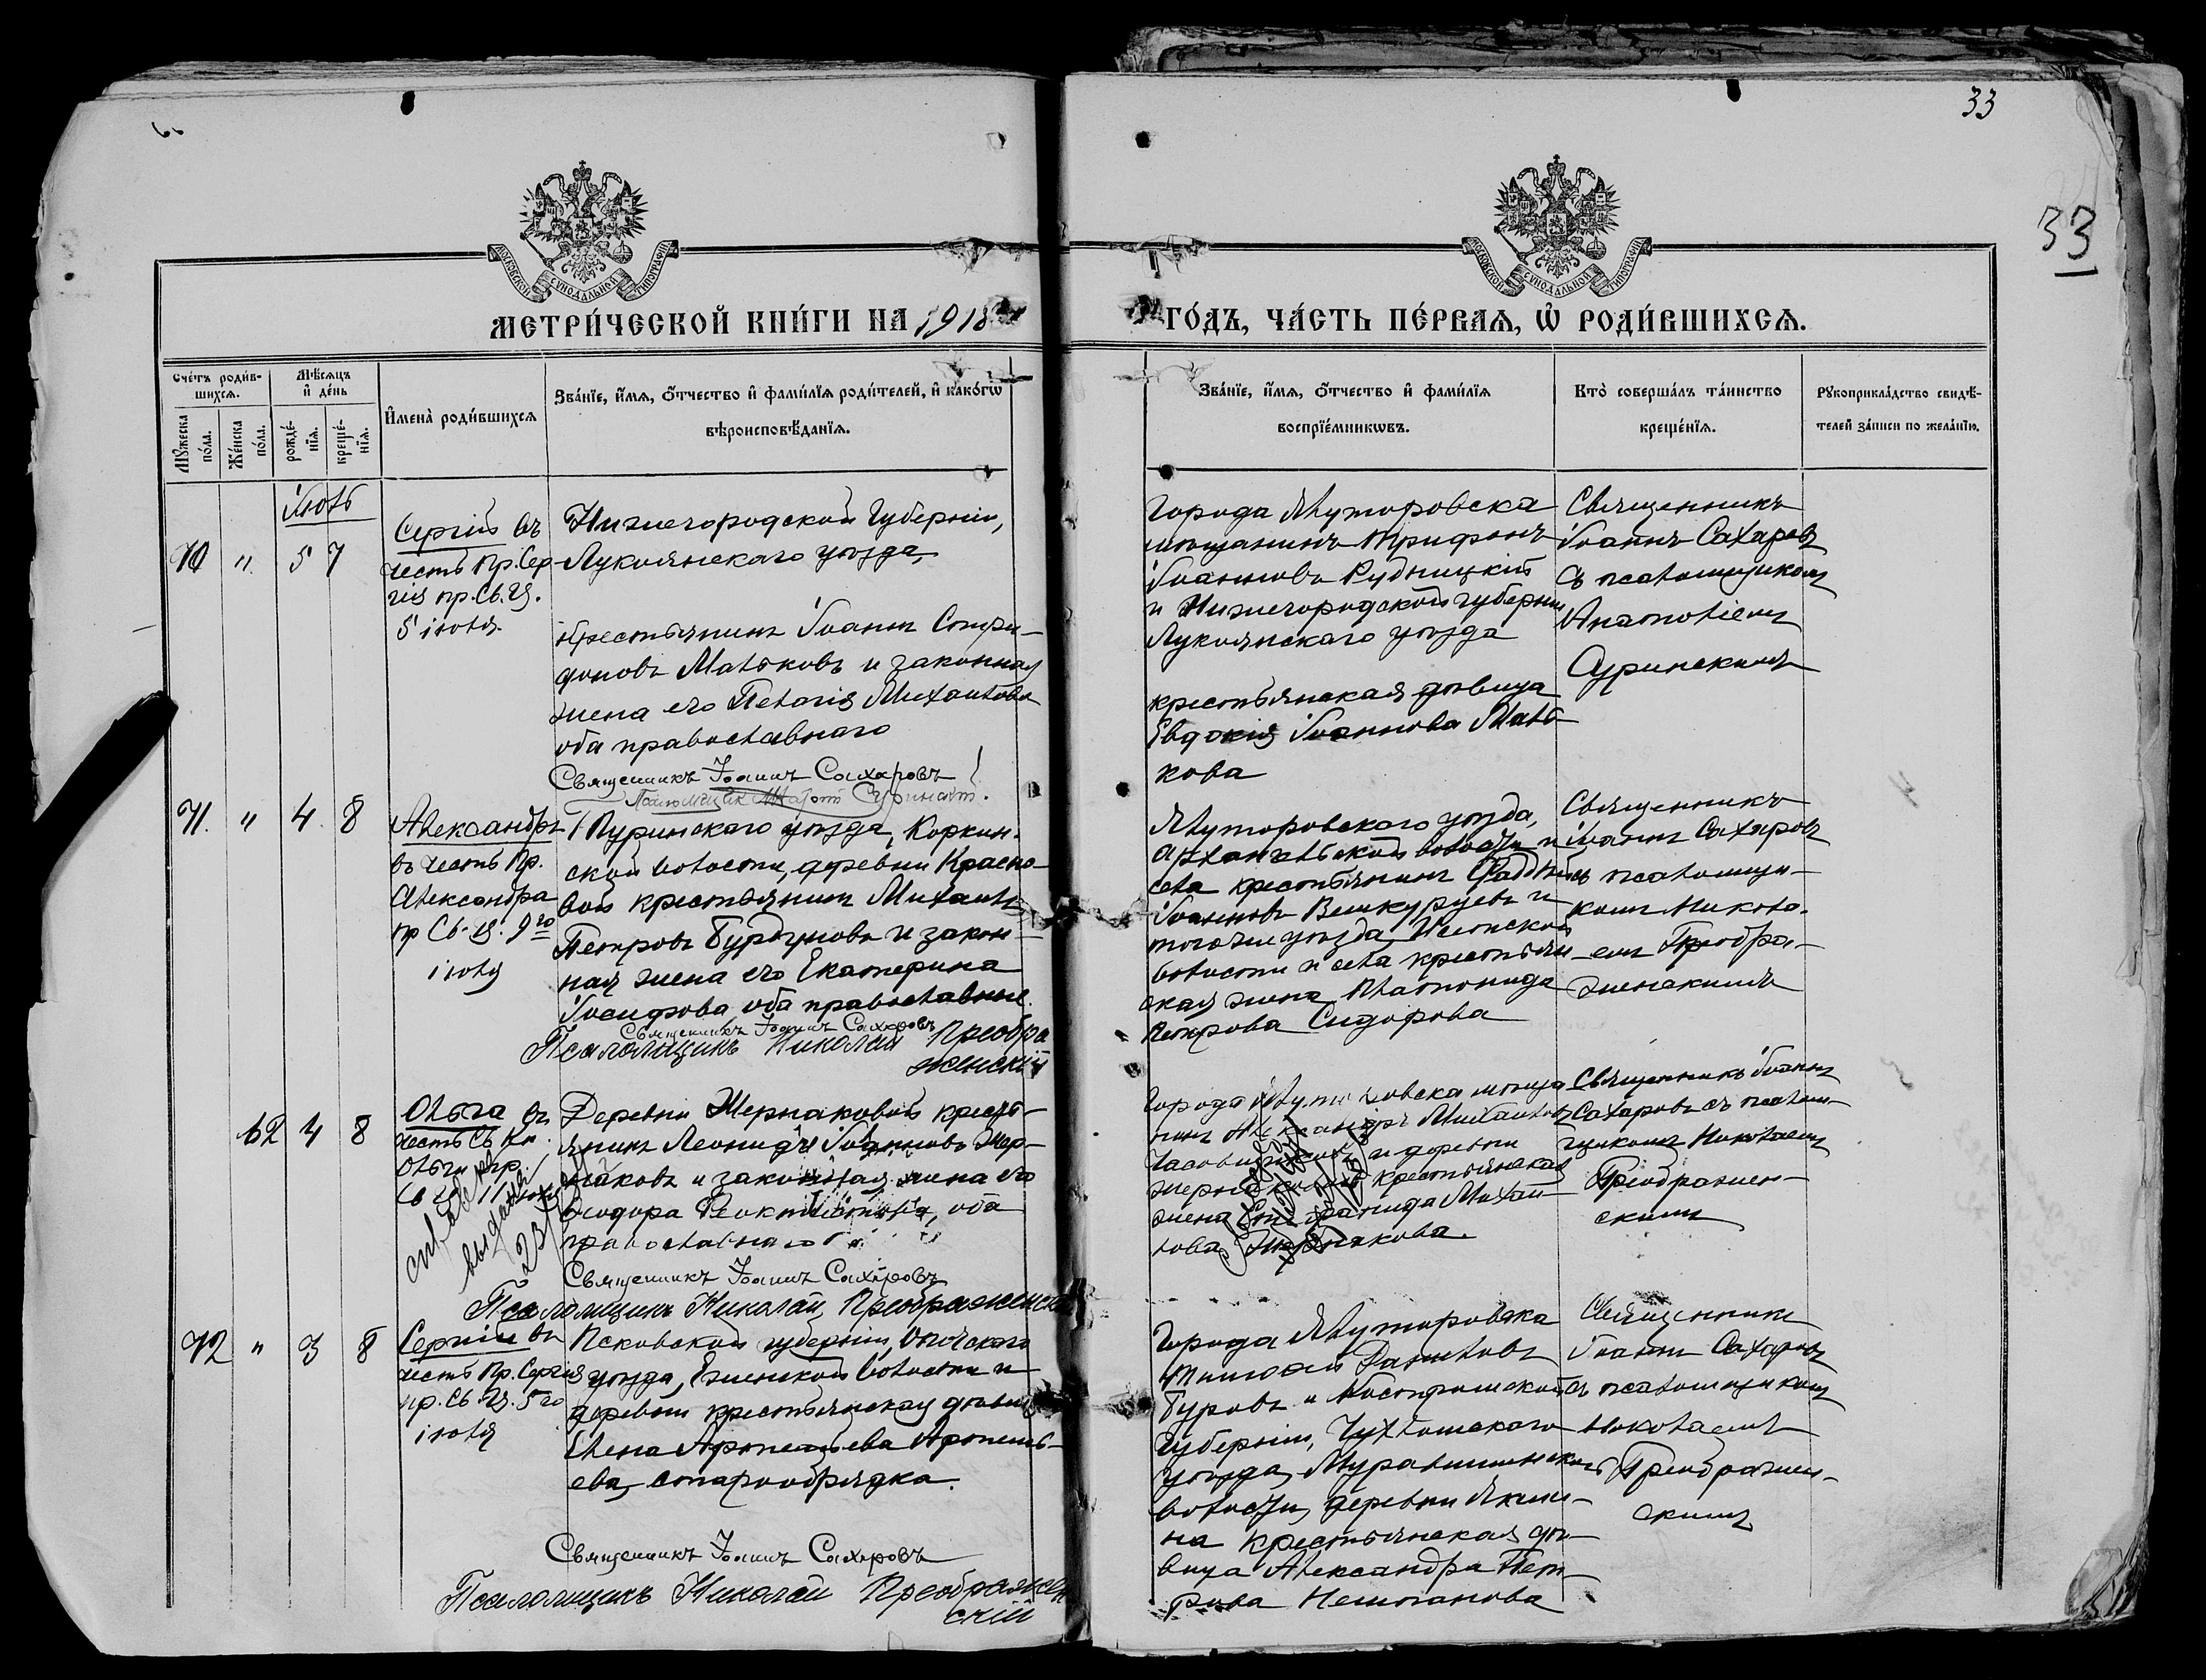 33
33
МОСКОВСКОЙ СѴНОДАЛЬНОЙ ТИПОГРАФІИ
МОСКОВСКОЙ СѴНОДАЛЬНОЙ ТИПОГРАФІИ
МЕТРИ́ЧЕСКОЙ КНИ́ГИ НА 1918
ГО́ДЪ, ЧА́СТЬ ПЕ́РВАѦ, Ѡ҆ РОДИ́ВШИХСѦ.
Сче́тъ роди́в-
шихсѧ.
Мѣ́сѧцъ
и҆ де́нь
Мꙋ́жеска
по́ла.
Же́нска
по́ла.
рожде́-
нїѧ.
креще́-
нїѧ.
И҆мена̀ роди́вшихсѧ
Зва́нїе, и҆́мѧ, ѻ҆́тчество и҆ фами́лїѧ роди́телей, и҆ како́гѡ
вѣроисповѣ́данїѧ.
Зва́нїе, и҆́мѧ, ѻ҆́тчество и҆ фами́лїѧ
воспрїе́мникѡвъ.
Кто̀ соверша́лъ та́инство
креще́нїѧ.
Рꙋкоприкла́дство свидѣ́-
телей за́писи по жела́нїю.
Іюль
70 " 5 7
Сергій въ
честь Пр. Сер
гія пр. Св. Ц.
5 іюля.
Нижегородской Губерніи,
Лукоянскаго уѣзда,
крестьянинъ Іоаннъ Спири-
доновъ Мальковъ и законная
жена его Пелагія Михаилова
оба православнаго
Священникъ Іоаннъ Сахаровъ
Города Ялуторовска
мѣщанинъ Трифонъ
Іоанновъ Рудницкій
и Нижегородской губерніи
Лукоянскаго уѣзда
крестьянская дѣвица
Евдокія Іоаннова Маль-
кова
Священникъ
Іоаннъ Сахаровъ
съ псаломщикомъ
Анатоліемъ
Суринскимъ
71. " 4. 8
Александръ
въ честь Пр.
Александра
пр Св. Ц. 9го
іюля
Туринскаго уѣзда, Коркин-
ской волости, деревни Красно-
вой крестьянинъ Михаилъ
Петровъ и закон-
ная жена его Екатерина
Іосифова, оба православные.
Священникъ Іоаннъ Сахаровъ
Псаломщикъ Николай Преобра
женскій
Ялуторовскаго уѣзда,
Архангельской волости и
села крестьянинъ
Іоанновъ и
того же уѣзда,
волости и села крестьян-
ская жена Платонида
Петрова Сидорова
Священникъ
Іоаннъ Сахаровъ
съ псаломщи-
комъ Никола-
емъ Преобра-
женскимъ
62 4 8
Ольга въ
честь Св. Кн.
Ольги пр.
Св Ц 11 іюля
Деревни Жернаковой кресть-
янинъ Леонидъ Іоанновъ Жер-
наковъ и законная жена его
Ѳеодора Ѳеоктистова, оба
православнаго
Священникъ Іоаннъ Сахаровъ
Псаломщикъ Николай Преображенскій
Города Ялуторовска мѣща
нинъ Александръ Михаиловъ
и деревни
Жернаковой крестьянская
жена Степанида Михаи-
лова Жернакова.
Священникъ Іоаннъ
Сахаровъ съ псалом-
щикомъ Николаемъ
Преображен-
скимъ
72 " 3 8
Сергій въ
честь Пр. Сергія
пр. Св. Ц. 5го
іюля
Псковской губерніи, Опочскаго
уѣзда, волости и
деревни крестьянская дѣвица
Елена Арпентьева Арпенть-
ева, старообрядка.
Священникъ Іоаннъ Сахаровъ
Псаломщикъ Николай Преображен
скій
Города Ялуторовска
Тимоѳей Даниловъ
Буровъ и Костромской
Губерніи, Чухломскаго
уѣзда,
волости, деревни Якши-
на крестьянская дѣ-
вица Александра Пет-
рова
Священникъ
Іоаннъ Сахаровъ
съ псаломщикомъ
Николаемъ
Преображен-
скимъ